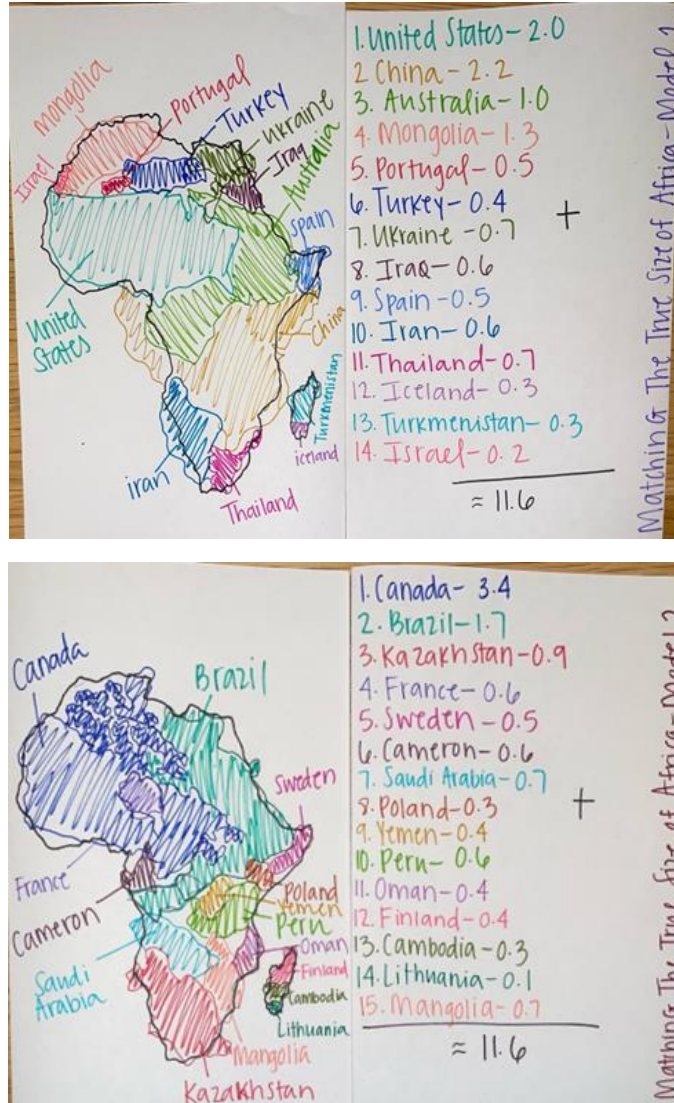 Mongolia
Portugal
Turkey
Ukraine
Iraq
Australia
Israel
Spain
United
States
China
Turkmenistan
iceland
iran
Thailand
1. United States - 2.0
2 China - 2.2
3. Australia - 1.0
4. Mongolia - 1.3
5. Portugal - 0.5
6. Turkey - 0.4
7. Ukraine - 0.7
8. Iraq - 0.6
9. Spain - 0.5
10. Iran - 0.6
11. Thailand - 0.7
12. Iceland - 0.3
13. Turkmenistan - 0.3
14. Israel - 0.2
+
≈ 11.6
Matching The True Size of Africa - Model 1
Canada
Brazil
Sweden
France
Cameron
Poland
Yemen
Peru
Oman
Saudi
Arabia
Finland
Cambodia
Lithuania
Mangolia
Kazakhstan
1. Canada - 3.4
2. Brazil - 1.7
3. Kazakhstan - 0.9
4. France - 0.6
5. Sweden - 0.5
6. Cameron - 0.6
7. Saudi Arabia - 0.7
8. Poland - 0.3
9. Yemen - 0.4
10. Peru - 0.6
11. Oman - 0.4
12. Finland - 0.4
13. Cambodia - 0.3
14. Lithuania - 0.1
15. Mangolia - 0.7
+
≈ 11.6
Matching The True Size of Africa - Model 2